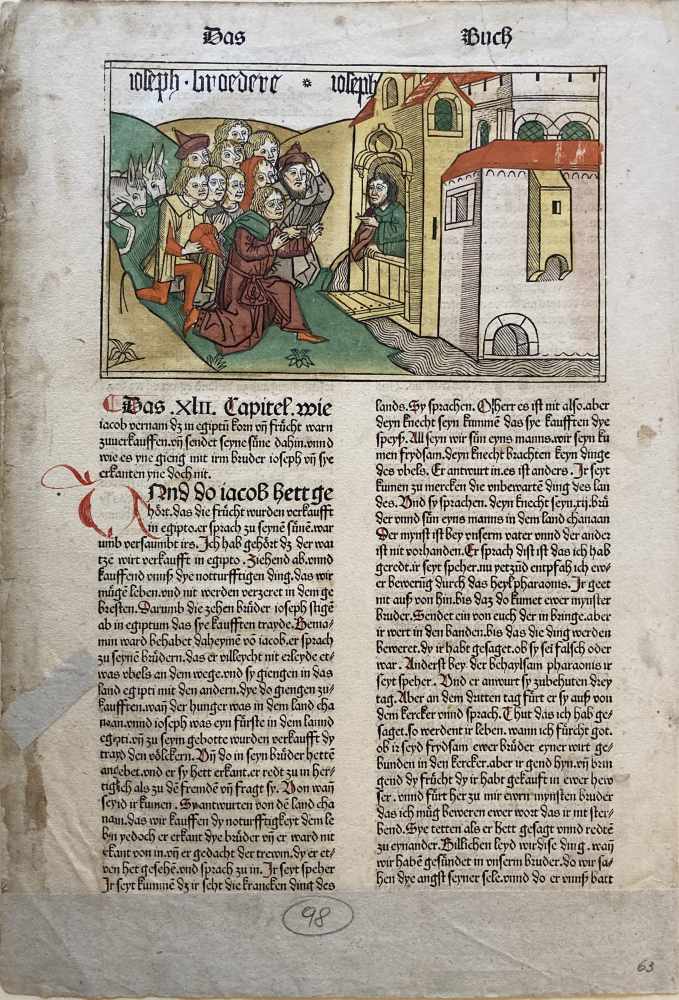 Das Buch
ioseph · broedere * ioseph
Das .XLII. Capitel. wie
iacob vernam dz in egiptū korn vn̄ frücht warn
zuuerkauffen. vn̄ sendet seyne süne dahin. vnnd
wie es yne gieng mit irm bruder ioseph vn̄ sye
erkanten yne doch nit.
Vnd do iacob hett ge
hört. das die frücht wurden verkaufft
in egipto. er sprach zu seynē sünē. war
umb versaumbt irs. Ich hab gehört dz der wai
tze wirt verkaufft in egipto. Ziehend ab. vnnd
kauffend vnnß dye notturfftigen ding. das wir
mügē leben. vnd nit werden verzeret in dem ge
bresten. Darumb die zehen brüder ioseph stigē
ab in egiptum das sye kaufften trayde. Benia-
min ward behabet daheymē vō iacob. er sprach
zu seynē brüdern. das er villeycht nit erleyde et-
was vbels an dem wege. vnd sy giengen in das
land egipti mit den andern. dye do giengen zu-
kaufften. wan̄ der hunger was in dem land cha
naan. vnnd ioseph was eyn fürste in dem lannd
egipti. vn̄ zu seym gebotte wurden verkaufft dy
trayd den völckern. Vn̄ do in seyn brüder hettē
angebet. vnd er sy hett erkant. er redt zu in her-
tigklich als zu dē fremdē vn̄ fragt sy. Von wan̄
seyd ir kumen. Sy antwurten von dē land cha
naam. das wir kauffen dy noturfftigkeyt dem le
bēn yedoch er erkant dye brüder vn̄ er ward nit
erkant von in. vn̄ er gedacht der trewm. dy er et-
ven het gesehē. vnd sprach zu in. Ir seyt speher
Ir seyt kummē dz ir seht die krancken ding des
lands. Sy sprachen. O herr es ist nit also. aber
deyn knecht seyn kummē das sye kaufften dye
speyß. All seyn wir sün eyns manns. wir seyn kū
men frydsam. deyn knecht brachten keyn dinge
des vbels. Er antwurt in. es ist anders. Ir seyt
kumen zu mercken die vnbewartē ding des lan
des. Vnd sy sprachen. deyn knecht seyn .xij. brü
der vnnd sün eyns manns in dem land chanaan
Der mynst ist bey vnserm vater vnnd der ander
ist nit vorhanden. Er sprach dist ist das ich hab
geredt. ir seyt speher. nu yetzūd entpfah ich ew-
er bewerūg durch das heyl pharaonis. Ir geet
nit auß von hin. bis daz do kumet ewer mynster
bruder. Sendet ein von euch der in bringe. aber
ir wert in den banden. bis das die ding werden
beweret. dy ir habt gesaget. ob sy sei falsch oder
war. Anderst bey der behaylsam pharaonis ir
seyt speher. Vnd er anwurt sy zubehuten drey
tag. Aber an dem dritten tag fürt er sy auß von
dem kercker vnnd sprach. Thut das ich hab ge-
saget. so werdent ir leben. wann ich fürcht got.
ob ir seyd frydsam ewer brüder eyner wirt ge-
bunden in den kercker. aber ir gend hyn. vn̄ brin
gend dy frücht dy ir habt gekauft in ewer hew
ser. vnnd fürt her zu mir ewrn mynsten bruder
das ich müg beweren ewer wort das ir nit ster-
bend. Sye tetten als er hett gesagt vnnd redtē
zu eynander. Billichen leyd wir dise ding. wan̄
wir habē gesündet in vnserm bruder. do wir sa-
hen dye angst seyner sele. vnnd do er vnnß batt
98
63